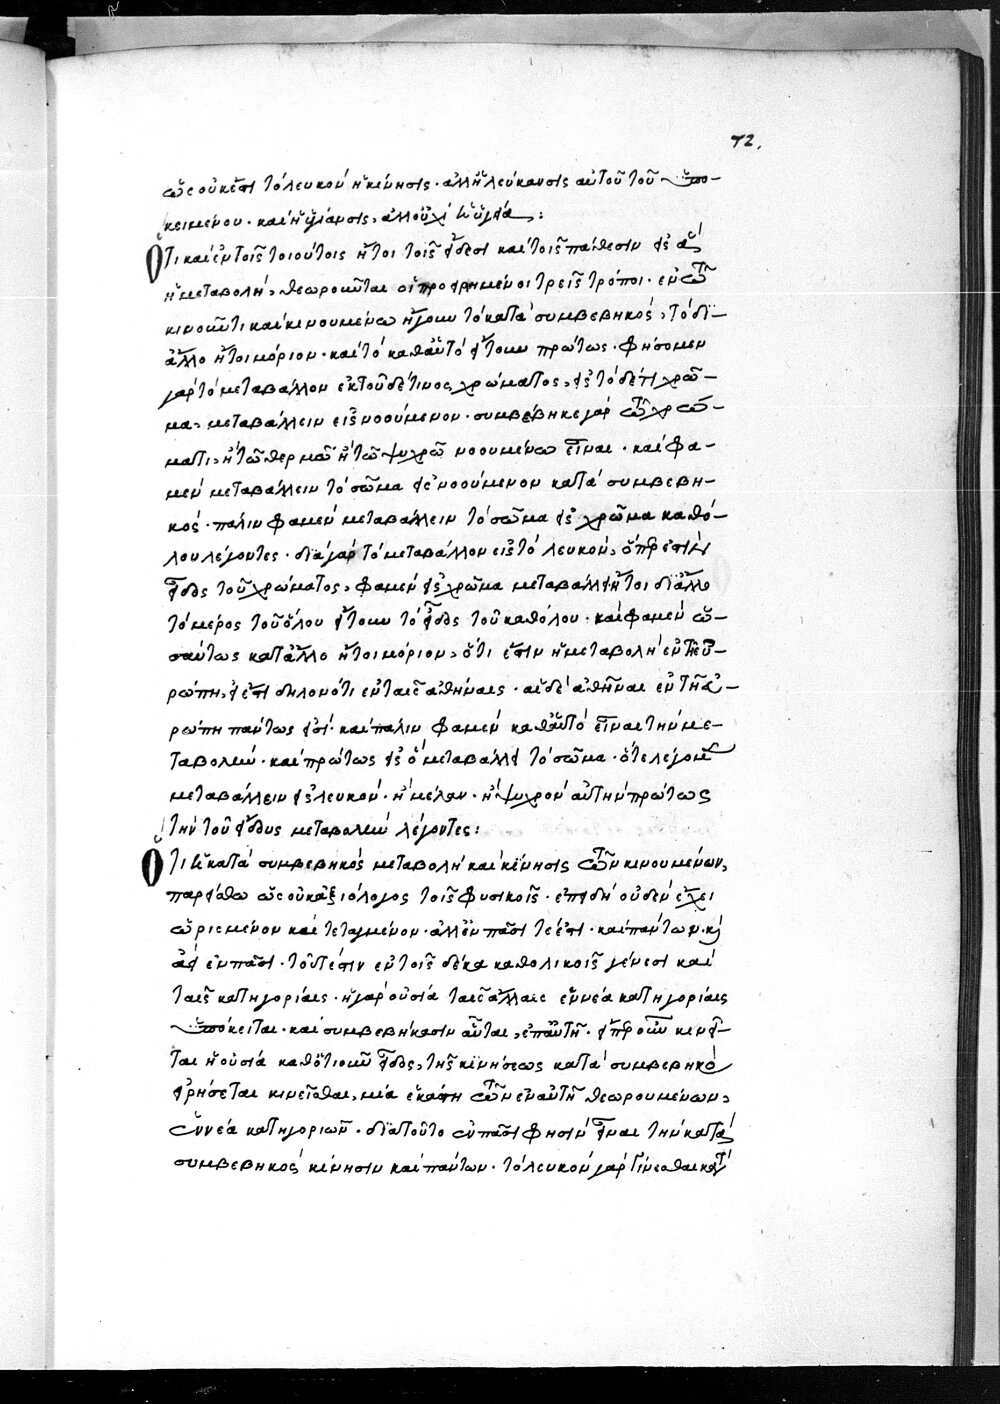 72.
ὥς οὐκ ἔστι τὸ λευκὸν ἡ κίνησις· ἀλλ' ἡ λεύκανσις αὐτοῦ τοῦ ὑπο-
κειμένου· καὶ ἡ ὑγίανσις, ἀλλ' οὐχὶ ἡ ὑγεία:
Ὅτι καὶ ἐν τοῖς τοιούτοις ἤτοι τοῖς εἴδεσι καὶ τοῖς πάθεσιν εἰς ἃ
ἡ μεταβολὴ, θεωροῦνται οἱ προειρημένοι τρεῖς τρόποι· ἐν τῷ
κινοῦντι καὶ κινουμένῳ ἤγουν τὸ κατὰ συμβεβηκός, τὸ δι'
ἄλλο ἤτοι μόριον· καὶ τὸ καθ' αὑτὸ εἴτουν πρώτως· φήσομεν
γὰρ τὸ μεταβάλλον ἐκ τοῦδέ τινος χρώματος, εἰς τὸ δέ τι χρῶ-
μα, μεταβάλλειν εἰς νοούμενον· συμβέβηκε γὰρ τῷ χρώ-
ματι, ἢ τῷ θερμῷ ἢ τῷ ψυχρῷ νοουμένῳ εἶναι· καὶ φα-
μὲν μεταβάλλειν τὸ σῶμα εἰς νοούμενον κατὰ συμβεβη-
κός· πάλιν φαμὲν μεταβάλλειν τὸ σῶμα εἰς χρῶμα καθό-
λου λέγοντες· διὰ γὰρ τὸ μεταβάλλον εἰς τὸ λευκὸν, ὅπερ ἐστὶν
εἶδος τοῦ χρώματος, φαμὲν εἰς χρῶμα μεταβάλλειν ἤτοι δι' ἄλλο
τὸ μέρος τοῦ ὅλου εἴτουν τὸ εἶδος τοῦ καθόλου· καὶ φαμὲν ὡ-
σαύτως κατ' ἄλλο ἤτοι μόριον, ὅτι ἐστὶν ἡ μεταβολὴ ἐν τῇ Εὐ-
ρώπῃ, εἰ ἔστι δηλονότι ἐν ταῖς ἀθήναις· αἱ δὲ ἀθῆναι ἐν τῇ Εὐ-
ρώπῃ πάντως εἰσί· καὶ πάλιν φαμὲν καθ' αὑτὸ εἶναι τὴν με-
ταβολὴν· καὶ πρώτως εἰς ὃ μεταβάλλει τὸ σῶμα· ὅτε λέγομεν
μεταβάλλειν εἰς λευκὸν· ἢ μέλαν· ἢ ψυχρὸν αὐτὴν πρώτως
τὴν τοῦ εἴδους μεταβολὴν λέγοντες:
Ὅτι ἡ κατὰ συμβεβηκὸς μεταβολὴ καὶ κίνησις τῶν κινουμένων,
παρείσθω ὡς οὐκ ἀξιόλογος τοῖς φυσικοῖς· ἐπειδὴ οὐδὲν ἔχει
ὡρισμένον καὶ τεταγμένον· ἀλλ' ἐν πᾶσί τε ἐστι· καὶ πάντων· καὶ
ἀεὶ ἐν πᾶσι· τουτέστιν ἐν τοῖς δέκα καθολικοῖς γένεσι καὶ
ταῖς κατηγορίαις· ἡ γὰρ οὐσία ταῖς ἄλλαις ἐννέα κατηγορίαις
ὑπόκειται· καὶ συμβεβήκασιν αὗται, ἐπ' αὐτῇ· εἴπερ οὖν κινεῖ-
ται ἡ οὐσία καθ' ὁτιοῦν εἶδος, τῆς κινήσεως κατὰ συμβεβηκὸς
εἰρήσεται κινεῖσθαι, μία ἑκάστη τῶν ἐν αὐτῇ θεωρουμένων,
ἐννέα κατηγοριῶν· διὰ τοῦτο ἐν πᾶσι φησὶν εἶναι τὴν κατὰ
συμβεβηκὸς κίνησιν καὶ πάντων· τὸ λευκὸν γὰρ γίνεσθαι κατὰ